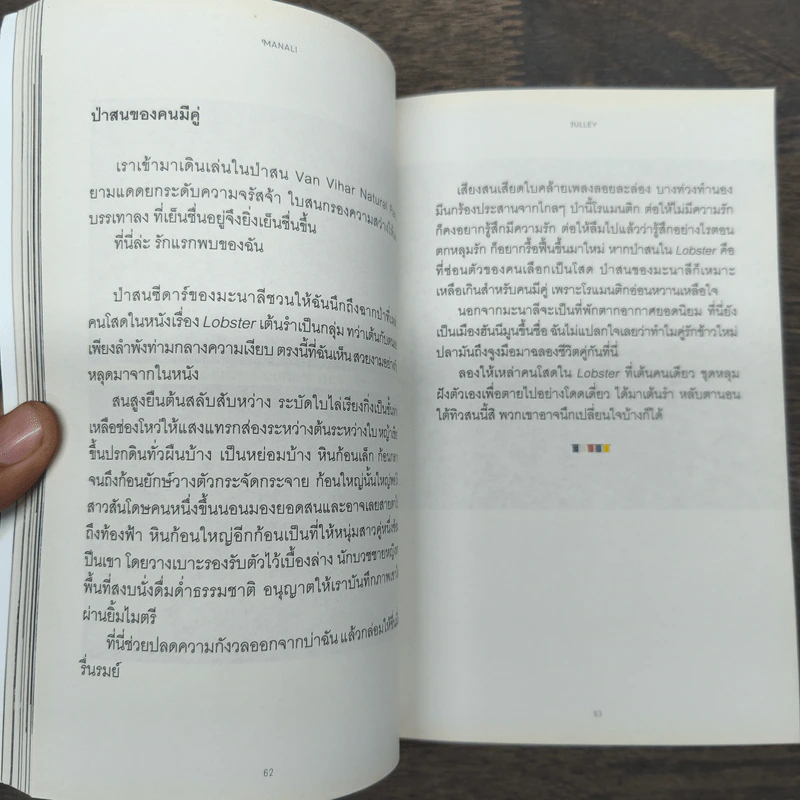 MANALI
ป่าสนของคนมีคู่
เราเข้ามาเดินเล่นในป่าสน Van Vihar Natural
ยามแดดยกระดับความจรัสจ้า ใบสนกรองความสว่าง
บรรเทาลง ที่เย็นชื่นอยู่จึงยิ่งเย็นชื่นขึ้น
ที่นี่ล่ะ รักแรกพบของฉัน
ป่าสนซีดาร์ของมะนาลีชวนให้ฉันนึกถึงฉากป่าที่
คนโสดในหนังเรื่อง Lobster เต้นรำเป็นกลุ่ม ทว่าเต้นกับ
เพียงลำพังท่ามกลางความเงียบ ตรงนี้ที่ฉันเห็น สวยงามอย่าง
หลุดมาจากในหนัง
สนสูงยืนต้นสลับสับหว่าง ระบัดใบไล่เรียงกิ่งเป็นชั้น
เหลือช่องโหว่ให้แสงแทรกส่องระหว่างต้นระหว่างใบ หญ้า
ขึ้นปรกดินทั่วผืนบ้าง เป็นหย่อมบ้าง หินก้อนเล็ก ก้อน
จนถึงก้อนยักษ์วางตัวกระจัดกระจาย ก้อนใหญ่นั้นใหญ่
สาวสันโดษคนหนึ่งขึ้นนอนมองยอดสนและอาจเลยสายตา
ถึงท้องฟ้า หินก้อนใหญ่อีกก้อนเป็นที่ให้หนุ่มสาวคู่หนึ่ง
ปีนเขา โดยวางเบาะรองรับตัวไว้เบื้องล่าง นักบวชชายหญิง
พื้นที่สงบนั่งดื่มด่ำธรรมชาติ อนุญาตให้เราบันทึกภาพ
ผ่านยิ้มไมตรี
ที่นี่ช่วยปลดความกังวลออกจากบ่าฉัน แล้วกล่อมให้
รื่นรมย์
62
TULLEY
เสียงสนเสียดใบคล้ายเพลงลอยละล่อง บางท่วงทำนอง
มีนกร้องประสานจากไกลๆ ป่านี้โรแมนติก ต่อให้ไม่มีความรัก
ก็คงอยากรู้สึกมีความรัก ต่อให้ลืมไปแล้วว่ารู้สึกอย่างไรตอน
ตกหลุมรัก ก็อยากรื้อฟื้นขึ้นมาใหม่ หากป่าสนใน Lobster คือ
ที่ซ่อนตัวของคนเลือกเป็นโสด ป่าสนของมะนาลีก็เหมาะ
เหลือเกินสำหรับคนมีคู่ เพราะโรแมนติกอ่อนหวานเหลือใจ
นอกจากมะนาลีจะเป็นที่พักตากอากาศยอดนิยม ที่นี่ยัง
เป็นเมืองฮันนีมูนขึ้นชื่อ ฉันไม่แปลกใจเลยว่าทำไมคู่รักข้าวใหม่
ปลามันถึงจูงมือมาฉลองชีวิตคู่กันที่นี่
ลองให้เหล่าคนโสดใน Lobster ที่เต้นคนเดียว ขุดหลุม
ฝังตัวเองเพื่อตายไปอย่างโดดเดี่ยว ได้มาเต้นรำ หลับตานอน
ใต้ทิวสนนี้สิ พวกเขาอาจนึกเปลี่ยนใจบ้างก็ได้
63